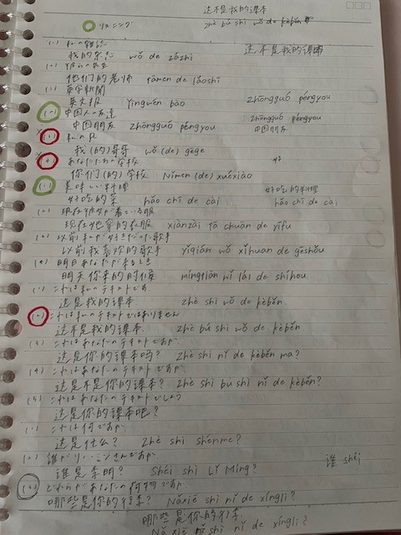 这不是我的课本
リスニング zhè bú shì wǒ de kèběn
(1) 私の雑誌 这不是我的课本
我的杂志 wǒ de zázhì
(2)
他们的老师 tāmen de lǎoshī
(3) 英字新聞
英文报 Yīngwén bào zhōngguó péngyou
(4) 中国人の友達 zhōngguó péngyou
中国朋友 zhōngguó péngyou 中国朋友
(5) 私の兄
我(的)哥哥 wǒ (de) gēge
(6) あなたたちの学校
你们(的)学校 Nǐmen (de) xuéxiào
(7) 美味しい料理 好吃的料理
好吃的菜 hǎo chī de cài hǎo chī de cài
现在他穿的衣服 xiànzài tā chuān de yīfu
以前我喜欢的歌手 yǐqián wǒ xǐhuan de gēshǒu
明天你来的时候 míngtiān nǐ lái de shíhou
(1) これは私のテキストです
这是我的课本 zhè shì wǒ de kèběn
(2) これは私のテキストではありません
这不是我的课本 zhè bú shì wǒ de kèběn
(3) これはあなたのテキストですか
这是你的课本吗? Zhè shì nǐ de kèběn ma?
(4) これはあなたのテキストですか
这是不是你的课本? Zhè shì bu shì nǐ de kèběn?
(5) これはあなたのテキストでしょう
这是你的课本吧?
(6) これは何ですか
这是什么? Zhè shì shénme?
谁 shéi
谁是李明? Shéi shì Lǐ Míng?
(8) どれらがあなたの荷物ですか
哪些是你的行李? Nǎxiē shì nǐ de xíngli?
哪些是你的行李
Nǎ xiē shì nǐ de xíngli?